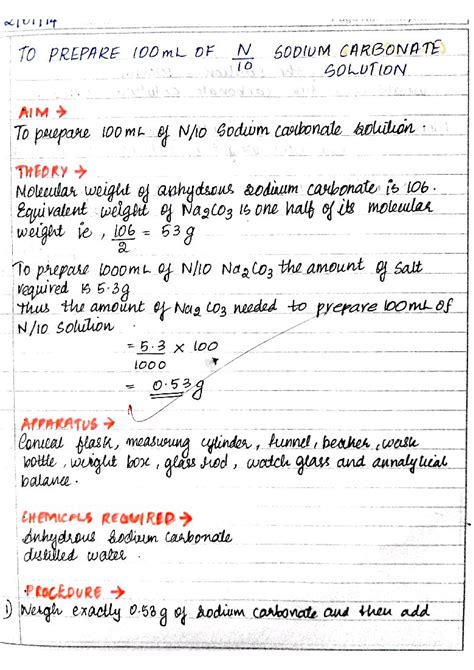 21/01/14
TO PREPARE 100mL OF N/10 SODIUM CARBONATE
SOLUTION
AIM →
To prepare 100mL of N/10 Sodium Carbonate solution.
THEORY →
Molecular weight of anhydrous sodium carbonate is 106.
Equivalent weight of Na2CO3 is one half of its molecular
weight ie, 106/2 = 53g
To prepare 1000mL of N/10 Na2CO3 the amount of salt
required is 5.3g
Thus the amount of Na2CO3 needed to prepare 100mL of
N/10 solution.
= 5.3/1000 x 100
= 0.53g
APPARATUS →
Conical flask, measuring cylinder, funnel, beaker, wash
bottle, weight box, glass rod, watch glass and annalytical
balance.
CHEMICALS REQUIRED →
Anhydrous Sodium Carbonate
distilled water.
PROCEDURE →
1) Weigh exactly 0.53g of sodium carbonate and then add